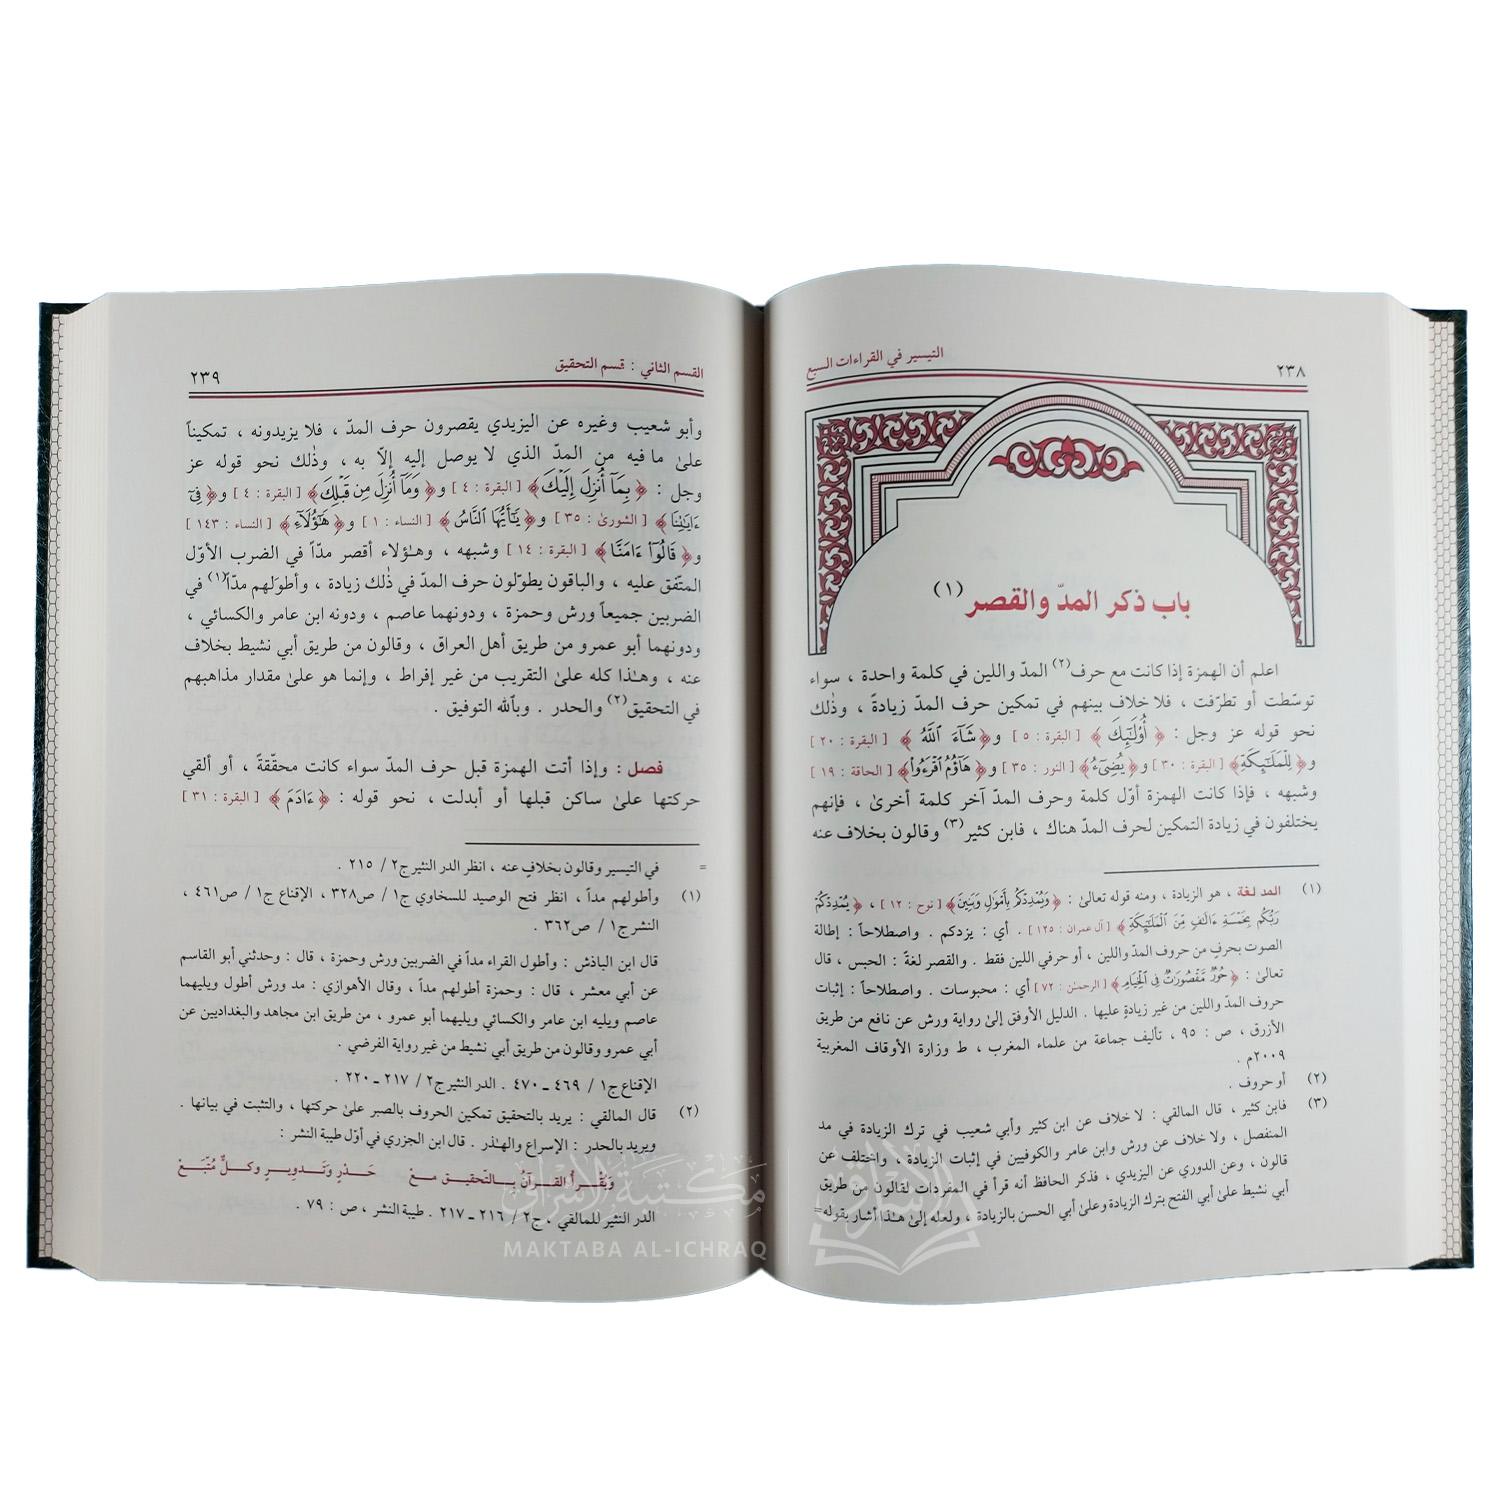 ٢٣٨
التيسير في القراءات السبع
باب ذكر المدّ والقصر (١)
اعلم أن الهمزة إذا كانت مع حرف(٢) المدّ واللين في كلمة واحدة ، سواء
توسّطت أو تطرّفت ، فلا خلاف بينهم في تمكين حرف المدّ زيادةً ، وذٰلك
نحو قوله عز وجل : ﴿ أُوْلَٰٓئِكَ ﴾ [ البقرة : ٥ ] و﴿ شَآءَ ٱللَّهُ ﴾ [ البقرة : ٢٠ ]
و﴿ لِلْمَلَٰٓئِكَةِ ﴾ [ البقرة : ٣٠ ] و﴿ يُضِىٓءُ ﴾ [ النور : ٣٥ ] و﴿ هَآؤُمُ ٱقْرَءُواْ ﴾ [ الحاقة : ١٩ ]
وشبهه ، فإذا كانت الهمزة أوّل كلمة وحرف المدّ آخر كلمة أخرىٰ ، فإنهم
يختلفون في زيادة التمكين لحرف المدّ هناك ، فابن كثير(٣) وقالون بخلاف عنه
(١) المد لغة ، هو الزيادة ، ومنه قوله تعالىٰ : ﴿ وَيُمْدِدْكُم بِأَمْوَٰلٍ وَبَنِينَ ﴾ [ نوح : ١٢ ] ، ﴿ يُمْدِدْكُمْ
رَبُّكُم بِخَمْسَةِ ءَالَٰفٍ مِّنَ ٱلْمَلَٰٓئِكَةِ ﴾ [ آل عمران : ١٢٥ ] . أي : يزدكم . واصطلاحاً : إطالة
الصوت بحرفٍ من حروف المدّ واللين ، أو حرفي اللين فقط . والقصر لغةً : الحبس ، قال
تعالىٰ : ﴿ حُورٌ مَّقْصُورَٰتٌ فِى ٱلْخِيَامِ ﴾ [ الرحمٰن : ٧٢ ] أي : محبوسات . واصطلاحاً : إثبات
حروف المدّ واللين من غير زيادةٍ عليها . الدليل الأوفق إلىٰ رواية ورش عن نافع من طريق
الأزرق ، ص : ٩٥ ، تأليف جماعة من علماء المغرب ، ط وزارة الأوقاف المغربية
٢٠٠٩م .
(٢) أو حروف .
(٣) فابن كثير ، قال المالقي : لا خلاف عن ابن كثير وأبي شعيب في ترك الزيادة في مد
المنفصل ، ولا خلاف عن ورش وابن عامر والكوفيين في إثبات الزيادة ، واختلف عن
قالون ، وعن الدوري عن اليزيدي ، فذكر الحافظ أنه قرأ في المفردات لقالون من طريق
أبي نشيط علىٰ أبي الفتح بترك الزيادة وعلىٰ أبي الحسن بالزيادة ، ولعله إلىٰ هٰذا أشار بقوله=
القسم الثاني : قسم التحقيق
٢٣٩
وأبو شعيب وغيره عن اليزيدي يقصرون حرف المدّ ، فلا يزيدونه ، تمكيناً
علىٰ ما فيه من المدّ الذي لا يوصل إليه إلاّ به ، وذٰلك نحو قوله عز
وجل : ﴿ بِمَآ أُنزِلَ إِلَيْكَ ﴾ [ البقرة : ٤ ] و﴿ وَمَآ أُنزِلَ مِن قَبْلِكَ ﴾ [ البقرة : ٤ ] و﴿ فِىٓ
ءَايَٰتِنَا ﴾ [ الشورىٰ : ٣٥ ] و﴿ يَٰٓأَيُّهَا ٱلنَّاسُ ﴾ [ النساء : ١ ] و﴿ هَٰٓؤُلَآءِ ﴾ [ النساء : ١٤٣ ]
و﴿ قَالُوٓاْ ءَامَنَّا ﴾ [ البقرة : ١٤ ] وشبهه ، وهٰؤلاء أقصر مدّاً في الضرب الأوّل
المتّفق عليه ، والباقون يطوّلون حرف المدّ في ذٰلك زيادة ، وأطولَهم مدّاً(١) في
الضربين جميعاً ورش وحمزة ، ودونهما عاصم ، ودونه ابن عامر والكسائي ،
ودونهما أبو عمرو من طريق أهل العراق ، وقالون من طريق أبي نشيط بخلاف
عنه ، وهٰذا كله علىٰ التقريب من غير إفراط ، وإنما هو علىٰ مقدار مذاهبهم
في التحقيق(٢) والحدر . وبٱلله التوفيق .
فصل : وإذا أتت الهمزة قبل حرف المدّ سواء كانت محقّقةً ، أو ألقي
حركتها علىٰ ساكن قبلها أو أبدلت ، نحو قوله : ﴿ ءَادَمَ ﴾ [ البقرة : ٣١ ]
= في التيسير وقالون بخلافٍ عنه ، انظر الدر النثير ج٢ / ٢١٥ .
(١) وأطولهم مداً ، انظر فتح الوصيد للسخاوي ج١ / ص٣٢٨ ، الإقناع ج١ / ص٤٦١ ،
النشر ج١ / ص٣٦٢ .
قال ابن الباذش : وأطول القراء مداً في الضربين ورش وحمزة ، قال : وحدثني أبو القاسم
عن أبي معشر ، قال : وحمزة أطولهم مداً ، وقال الأهوازي : مد ورش أطول ويليهما
عاصم ويليه ابن عامر والكسائي ويليهما أبو عمرو ، من طريق ابن مجاهد والبغداديين عن
أبي عمرو وقالون من طريق أبي نشيط من غير رواية الفرضي .
الإقناع ج١ / ٤٦٩ ـ ٤٧٠ . الدر النثير ج٢ / ٢١٧ ـ ٢٢٠ .
(٢) قال المالقي : يريد بالتحقيق تمكين الحروف بالصبر علىٰ حركتها ، والتثبت في بيانها .
ويريد بالحدر : الإسراع والهذر . قال ابن الجزري في أوّل طيبة النشر :
وَيُقْرأُ القرآنُ بـالتّحقيقِ مَعْ حَدْرٍ وَتَدويرٍ وكلٌّ مُتّبَعْ
الدر النثير للمالقي ، ج٢ / ٢١٦ ـ ٢١٧ . طيبة النشر ، ص : ٧٩ .
مكتبة الإشراق
MAKTABA AL-ICHRAQ
الإشراق